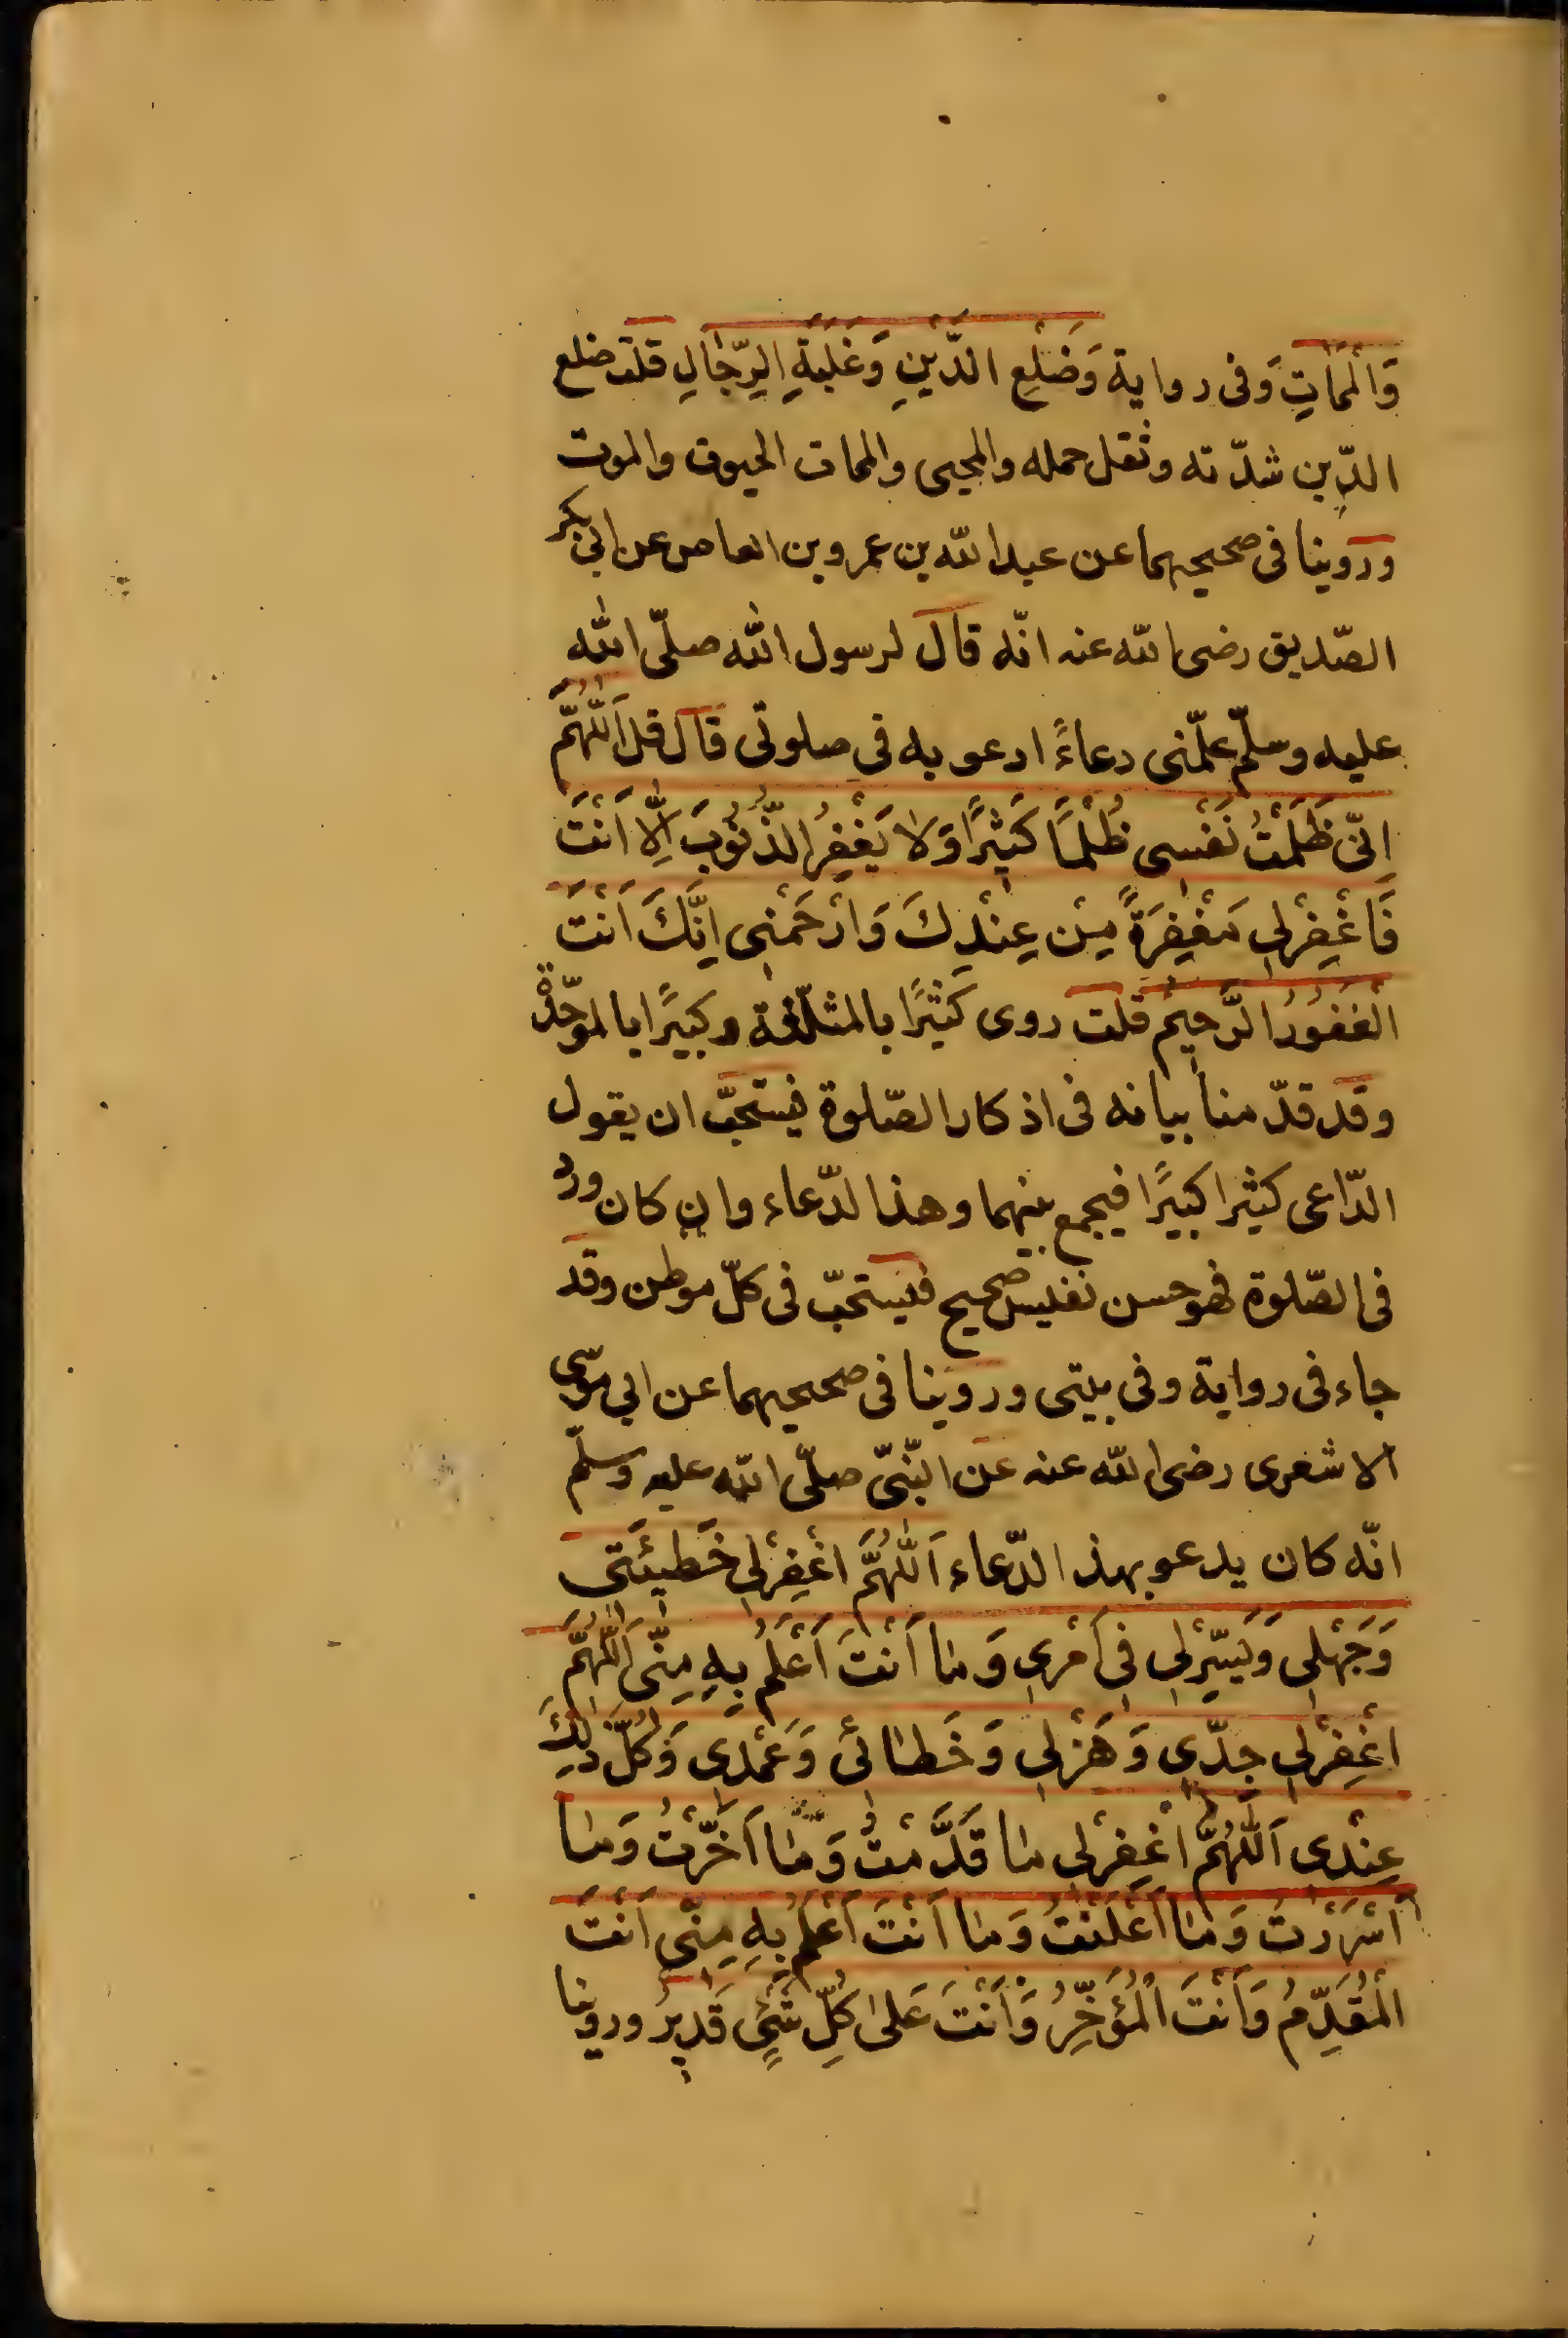 وَالْمَمَاتِ وَفى رواية وَضَلْعِ الدَّيْنِ وَغَلَبَةِ الرِّجَالِ قلت ضلع
الدّين شدّته وثقل حمله والمحيى والممات الحيوة والموت
وروينا فى صحيحيهما عن عبد اللّه بن عمرو بن العاص عن ابى بكر
الصّديق رضى اللّه عنه انّه قال لرسول اللّه صلّى اللّه
عليه وسلّم علّمنى دعاءً ادعو به فى صلوتى قال قل اَللّٰهُمَّ
اِنّى ظَلَمْتُ نَفْسِى ظُلْمًا كَثِيْرًا وَلا يَغْفِرُ الذُّنُوْبَ اِلَّا اَنْتَ
فَاغْفِرْلِى مَغْفِرَةً مِنْ عِنْدِكَ وَارْحَمْنِى اِنَّكَ اَنْتَ
الْغَفُوْرُ الرَّحِيْمُ قلت روى كَثِيْرًا بالمثلّثة وكبيْرًا بالموحّدة
وقد قدّمنا بيانه فى اذكار الصّلوة فيستحبّ ان يقول
الدّاعى كثيرا كبيْرًا فيجمع بينهما وهذا لدّعاء وان كان ورد
فى الصّلوة فهو حسن نفيس صحيح فيستحبّ فى كلّ موطن وقد
جاء فى رواية وفى بيتى وروينا فى صحيحيهما عن ابى موسى
الاشعرى رضى اللّه عنه عن النّبىّ صلّى اللّه عليه وسلّم
انّه كان يدعو بهذ الدّعاء اَللّٰهُمَّ اغْفِرْلِى خَطِيْئَتِى
وَجَهْلِى وَيَسِّرْلِى فِى اَمْرِى وَمَا اَنْتَ اَعْلَمُ بِهِ مِنّى اَللّٰهُمَّ
اغْفِرْلِى جِدّى وَهَزْلِى وَخَطَائى وَعَمْدِى وَكُلُّ ذٰلِكَ
عِنْدِى اَللّٰهُمَّ اغْفِرْلِى مَا قَدَّمْتُ وَمَا اَخَّرْتُ وَمَا
اَسْرَرْتُ وَمَا اَعْلَنْتُ وَمَا اَنْتَ اَعْلَمُ بِهِ مِنّى اَنْتَ
الْمُقَدِّمُ وَاَنْتَ الْمُؤَخِّرُ وَاَنْتَ عَلىٰ كُلِّ شَىْءٍ قَدِيْرٌ وروينا